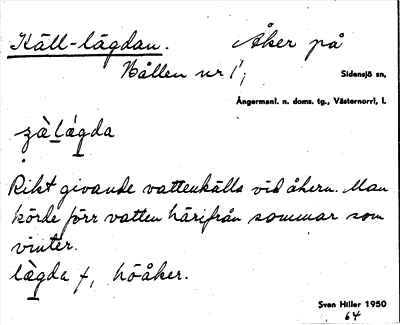 Käll-lägdan. Åker på
Hållen nr 1;
Sidensjö sn,
Ångermanl. n. doms. tg., Västernorrl. l.
zàlá̱gda
Rikt givande vattenkälla vid åkern. Man
körde förr vatten härifrån sommar som
vinter.
lä̀gda f, höåker.
Sven Hiller 1950
64